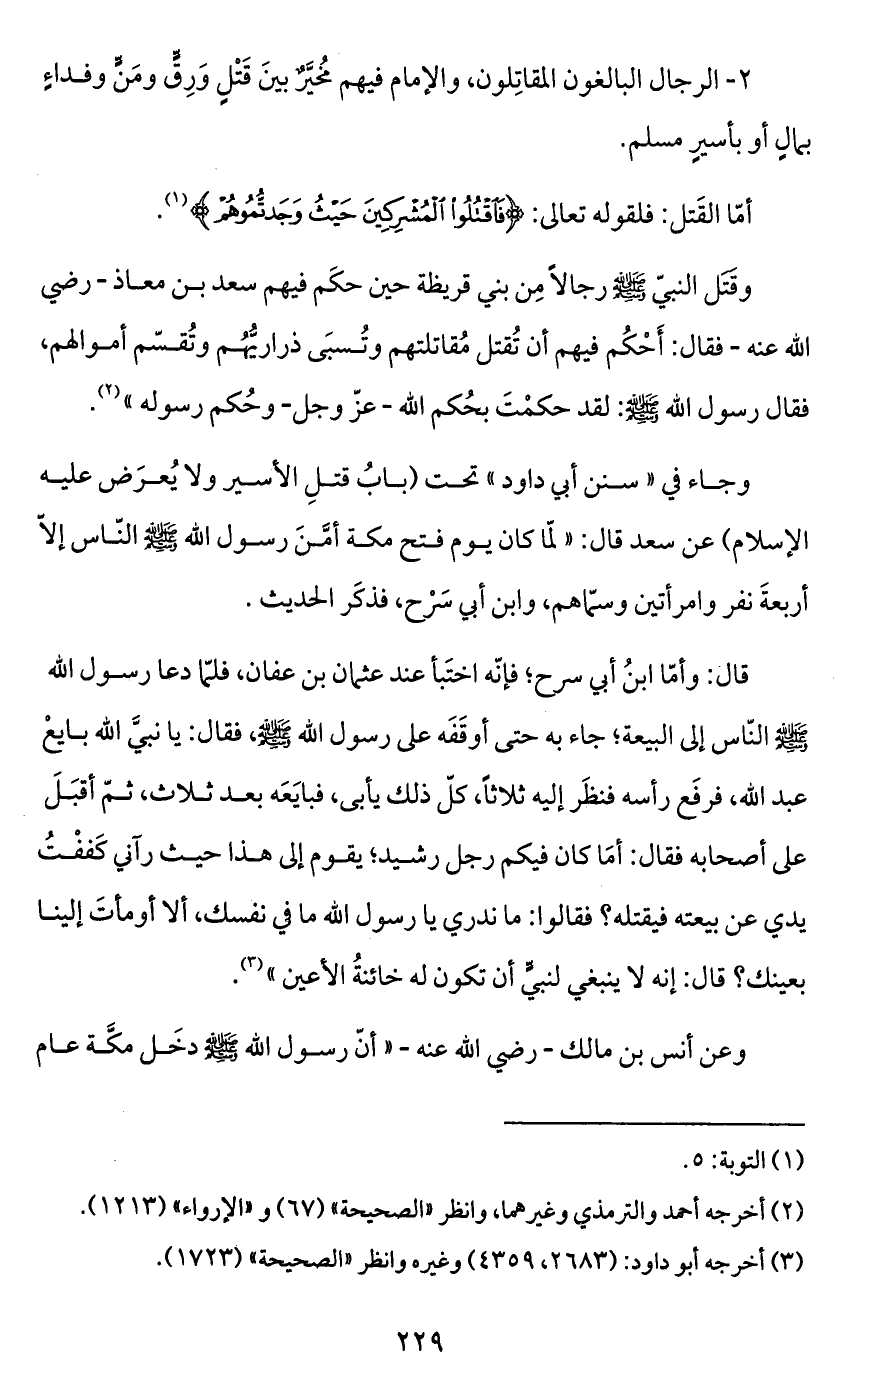 ٢- الرجال البالغون المقاتِلون، والإمام فيهم مُخيَّرٌ بينَ قَتْلٍ وَرِقٍّ ومَنٍّ وفـداءٍ
بمالٍ أو بأسيرٍ مسلم.
أمّا القَتل: فلقوله تعالى: ﴿فَٱقۡتُلُواْ ٱلۡمُشۡرِكِينَ حَيۡثُ وَجَدتُّمُوهُمۡ﴾(١).
وقَتَل النبيّ ﷺ رجالاً مِن بني قريظة حين حكَم فيهم سعد بـن معـاذ - رضي
الله عنه - فقال: أَحْكُم فيهم أن تُقتل مُقاتلتهم وتُـسبَى ذراريُّهُـم وتُقـسّم أمـوالهم،
فقال رسول الله ﷺ: لقد حكمْتَ بحُكم الله - عزّ وجل- وحُكم رسوله »(٢).
وجـاء في « سـنن أبي داود » تحـت (بـابُ قتـلِ الأسـير ولا يُعـرَض عليـه
الإسلام) عن سعد قال: « لمّا كان يـوم فـتح مكـة أمَّـنَ رسـول الله ﷺ النّـاس إلاّ
أربعةَ نفر وامرأتين وسمّاهم، وابن أبي سَرْح، فذكَر الحديث .
قال: وأمّا ابنُ أبي سرح؛ فإنّه اختَبأ عند عثمان بن عفان، فلمّا دعا رسـول الله
ﷺ النّاس إلى البيعة؛ جاء به حتى أوقَفَه على رسول الله ﷺ، فقال: يا نبيَّ الله بـايعْ
عبد الله، فرفَع رأسه فنظَر إليه ثلاثاً، كلّ ذلك يأبى، فبايَعَه بعـد ثـلاث، ثـمّ أقبَـلَ
على أصحابه فقال: أمَا كان فيكم رجل رشـيد؛ يقـوم إلى هـذا حيـث رآني كَففْـتُ
يدي عن بيعته فيقتله؟ فقالوا: ما ندري يا رسول الله ما في نفسك، ألا أومأتَ إلينـا
بعينك؟ قال: إنه لا ينبغي لنبيٍّ أن تكون له خائنةُ الأعين »(٣).
وعن أنس بن مالك - رضي الله عنه - « أنّ رسـول الله ﷺ دخَـل مكَّـة عـام
(١) التوبة: ٥.
(٢) أخرجه أحمد والترمذي وغيرهما، وانظر «الصحيحة» (٦٧) و «الإرواء» (١٢١٣).
(٣) أخرجه أبو داود: (٢٦٨٣، ٤٣٥٩) وغيره وانظر «الصحيحة» (١٧٢٣).
٢٢٩